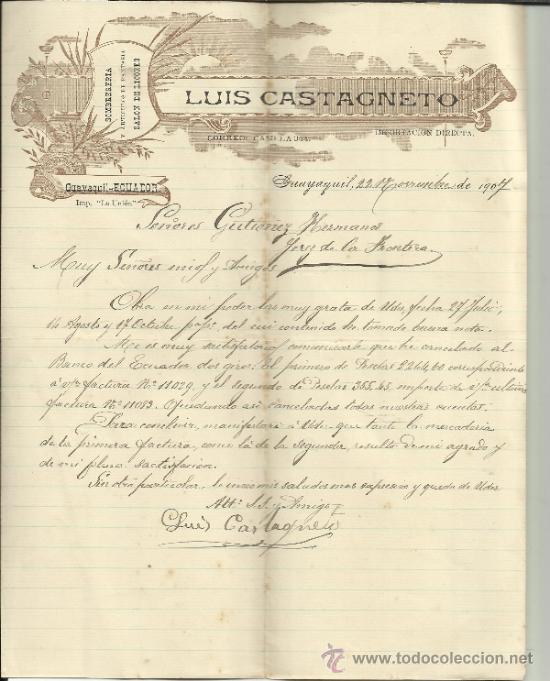 SOMBRERERIA
Y ARTICULOS DE FANTASIA
SALON DE LICORES
LUIS CASTAGNETO
CORREO: CASILLA
IMPORTACION DIRECTA.
Guayaquil-ECUADOR
Imp. "La Union"
Guayaquil, 22 Noviembre de 1907
Señores Gutierrez Hermanos
Jerez de la Frontera
Muy Señores mios y Amigos
Obra en mi poder las muy grata de Uds, fecha 27 Julio,
14 Agosto y 17 Octubre ppº. del cui contenido he tomado buena nota.
Me es muy sactifatorio comunicarle que he cancelado al
Banco del Ecuador dos giros: el primero de Pesetas 2264.60 correspondiente
á factura Nº 11029, y el segundo de Pesetas 355.45 importe de ultima
factura Nº 11083. Quedando asi canceladas todas nuestras cuentas.
Para concluir, manifestare á Uds. que tanto la mercaderia
de la primera factura, como la de la segunda, resultó de mi agrado y
de mi plena sactifacion.
Sin otra particular, mis saludos mas espresivos y quedo de Uds
Att. S.S. y Amigo
Luis Castagneto
www.todocoleccion.net